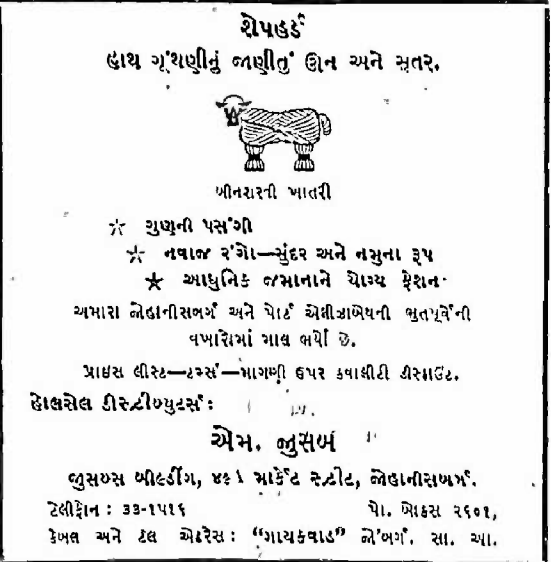 શેપહર્ડ
હાથ ગૂંથણીનું જાણીતું ઊન અને સૂતર.
બીનશરતી ખાતરી
ગુણની પસંગી
નવાજ રંગો—સુંદર અને નમુના રૂપ
આધુનિક જમાનાને યોગ્ય ફેશન
અમારા જોહાનીસબર્ગ અને પોર્ટ એલીઝાબેથની ભુતપૂર્વની
વખારોમાં માલ ભર્યો છે.
પ્રાઇસ લીસ્ટ—ટર્મ્સ—માગણી ઉપર કવાલીટી ડીસ્કાઉંટ.
હોલસેલ ડીસ્ટ્રીબ્યુટર્સ:
એમ. જુસબ
જુસબ્સ બીલ્ડીંગ, માર્કેટ સ્ટ્રીટ, જોહાનીસબર્ગ.
ટેલીફોન : ૩૩-૧૫૧૬ પો. બોકસ ૨૬૦૧,
કેબલ અને ટેલ એડરેસ : “ગાયકવાડ” જો'બર્ગ. સા. આ.